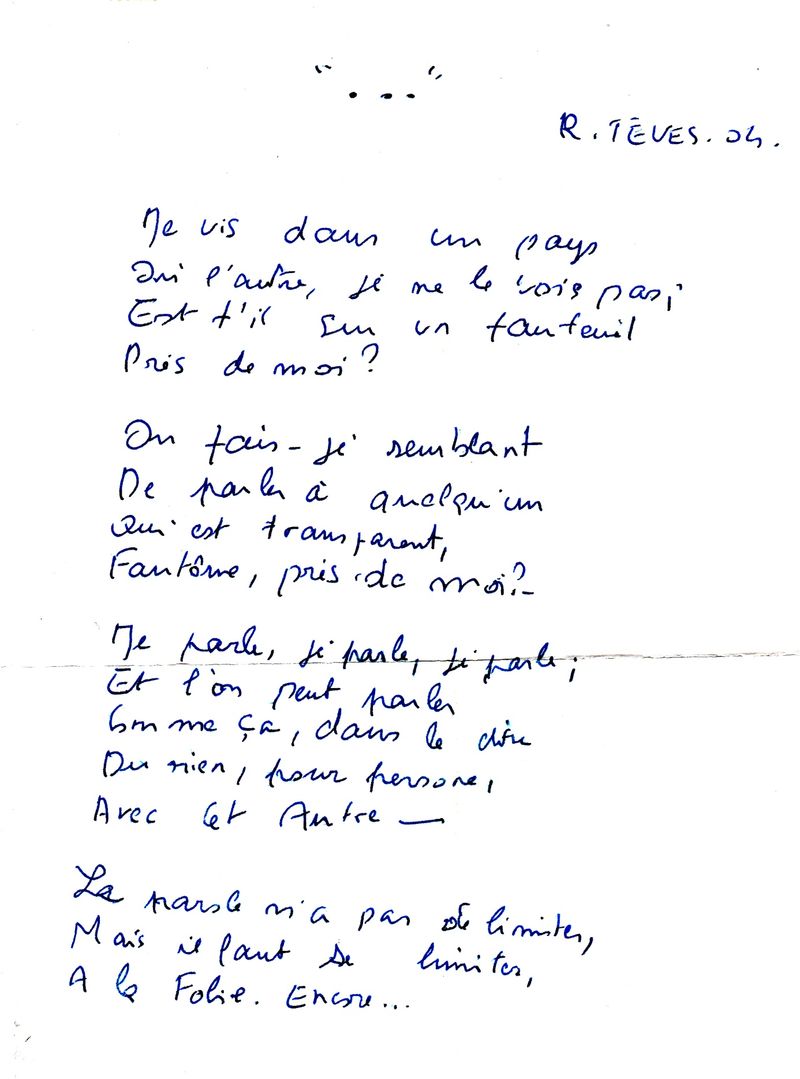 "..."
R. TÈVES. 04.
Je vis dans un pays
Où l'autre, je ne le vois pas;
Est t'il sur un fauteuil
Près de moi?
Ou fais-je semblant
De parler à quelqu'un
Qui est transparent,
Fantôme, près de moi?
Je parle, je parle, je parle;
Et l'on peut parler
Comme ça, dans le dire
Du rien, pour persone,
Avec cet Autre —
La parole n'a pas de limites,
Mais il faut se limiter,
A la Folie. Encore...